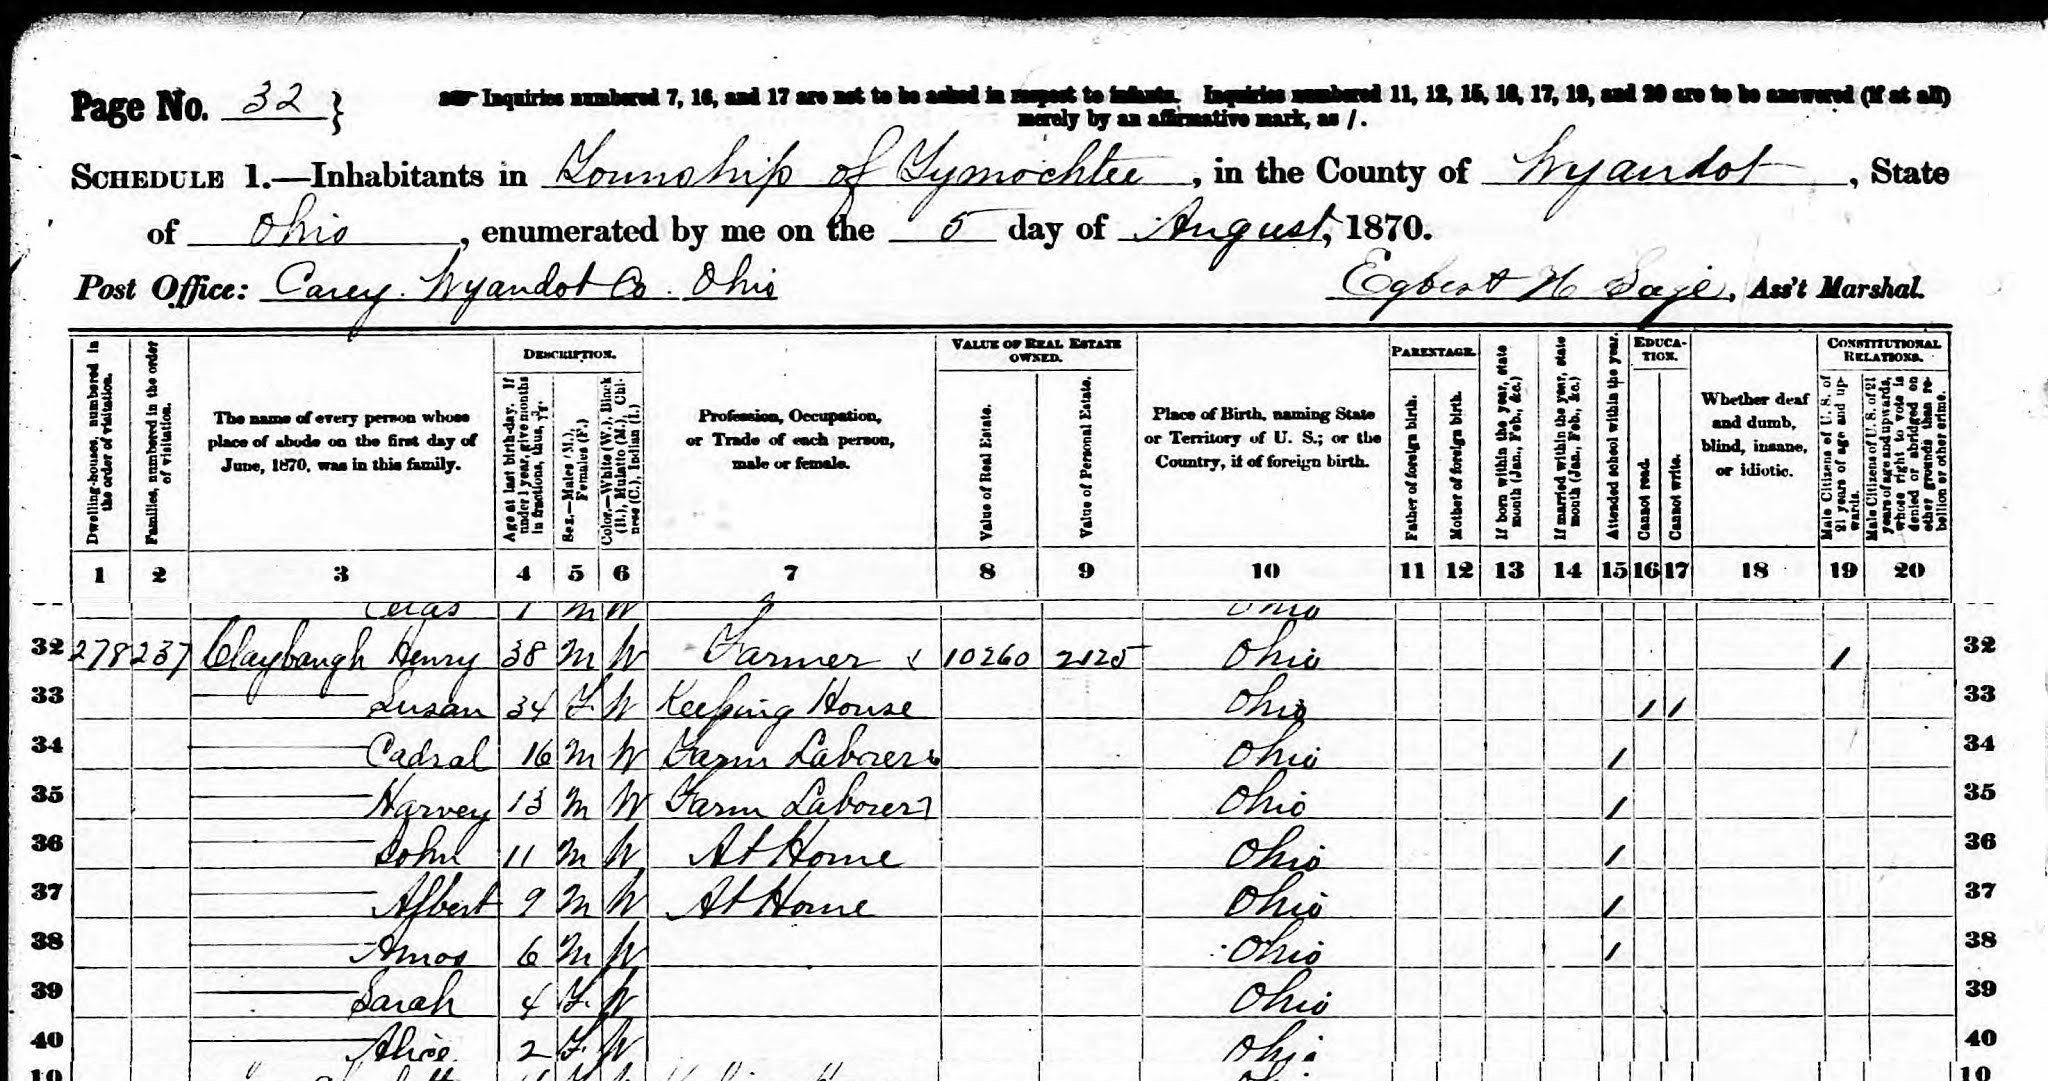 Page No. 32 } Inquiries numbered 7, 16, and 17 are not to be asked in respect to infants. Inquiries numbered 11, 12, 15, 16, 17, 19, and 20 are to be answered (if at all)
merely by an affirmative mark, as /.
SCHEDULE 1.—Inhabitants in Township of Tymochtee, in the County of Wyandot, State
of Ohio, enumerated by me on the 5 day of August, 1870.
Post Office: Carey Wyandot Co. Ohio Egbert H Sage, Ass't Marshal.
Dwelling-houses, numbered in the order of visitation.
Families, numbered in the order of visitation.
The name of every person whose place of abode on the first day of June, 1870, was in this family.
DESCRIPTION.
Age at last birth-day. If under 1 year, give months in fractions, thus, 3/12.
Sex.—Males (M.), Females (F.)
Color.—White (W.), Black (B.), Mulatto (M.), Chinese (C.), Indian (I.)
Profession, Occupation, or Trade of each person, male or female.
VALUE OF REAL ESTATE OWNED.
Value of Real Estate.
Value of Personal Estate.
Place of Birth, naming State or Territory of U. S.; or the Country, if of foreign birth.
PARENTAGE.
Father of foreign birth.
Mother of foreign birth.
If born within the year, state month (Jan., Feb., &c.)
If married within the year, state month (Jan., Feb., &c.)
Attended school within the year.
EDUCATION.
Cannot read.
Cannot write.
Whether deaf and dumb, blind, insane, or idiotic.
CONSTITUTIONAL RELATIONS.
Male Citizens of U. S. of 21 years of age and upwards.
Male Citizens of U. S. of 21 years of age and upwards, whose right to vote is denied or abridged on other grounds than rebellion or other crime.
1 2 3 4 5 6 7 8 9 10 11 12 13 14 15 16 17 18 19 20
1 M W Ohio
32 278 237 Claybaugh Henry 38 M W Farmer 10260 2125 Ohio 1 32
33 Susan 34 F W Keeping House Ohio 1 1 33
34 Cadral 16 M W Farm Laborer Ohio 1 34
35 Harvey 13 M W Farm Laborer Ohio 1 35
36 John 11 M W At Home Ohio 1 36
37 Albert 9 M W At Home Ohio 1 37
38 Amos 6 M W Ohio 1 38
39 Sarah 4 F W Ohio 39
40 Alice 2 F W Ohio 40